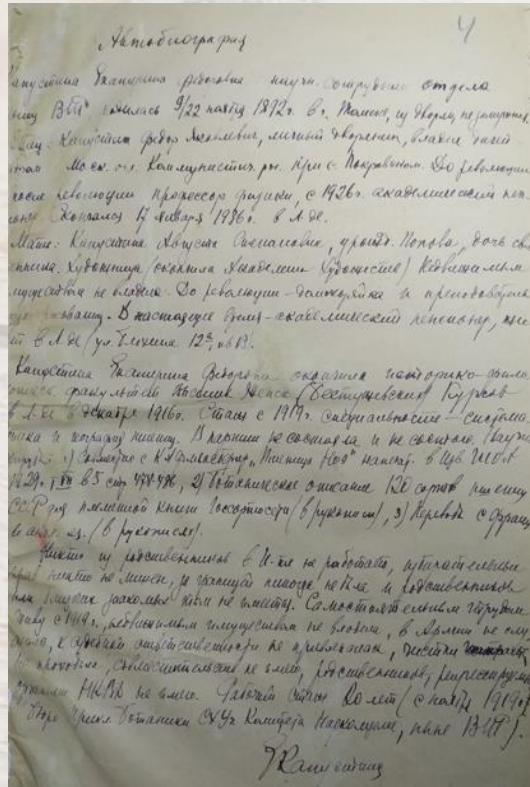 4
Автобиография
Капустина Екатерина Федоровна научн. сотрудник отдела
пшениц ВИР родилась 9/22 ноября 1892 г. в г. Томске, из дворян,
Отец: Капустин Федор Яковлевич, личный дворянин,
Моск. Коммунистич. при с. Покровском. До революции
после революции профессор физики, с 1926 г. академический
Скончался 17 января 1936 г. в Л-де.
Мать: Капустина Августа Степановна, урожд. Попова, дочь
Художница (окончила Академию Художеств) Недвижимым
имуществом не владела. До революции - домохозяйка и преподавала
В настоящее время - академический пенсионер,
в Л-де (ул.
Капустина Екатерина Федоровна окончила историко-
факультет Высших Женск. (Бестужевских) Курсов
в Л-де в декабре 1916 г. Стаж с 1919 г. специальность - система-
тика и пшениц. В не состояла и не состою.
1) Совместно с К.А. Фляксбергер "Пшеница
в 5 стр. 2) Ботаническое описание 120 сортов пшениц
СССР для племенной книги Госсортсети (в рукописи), 3) Перевод с
яз. (в рукописях).
Никто из родственников в И-те не работает, избирательных
прав никто не лишен, за границей никогда не был и родственников
или близких знакомых там не имеется. Самостоятельным трудом
живу с 1919 г., недвижимым имуществом не владела, в Армии не слу-
жила, к судебной ответственности не привлекалась, чистки
не проходила, совместительств не имею, родственников, репрессирован.
органами НКВД не имею. Рабочий стаж 20 лет (с ноября 1919 г.
Бюро Прикл. Ботаники СХУч. Комитета Наркомзема, ныне ВИР).
ЕКапустина